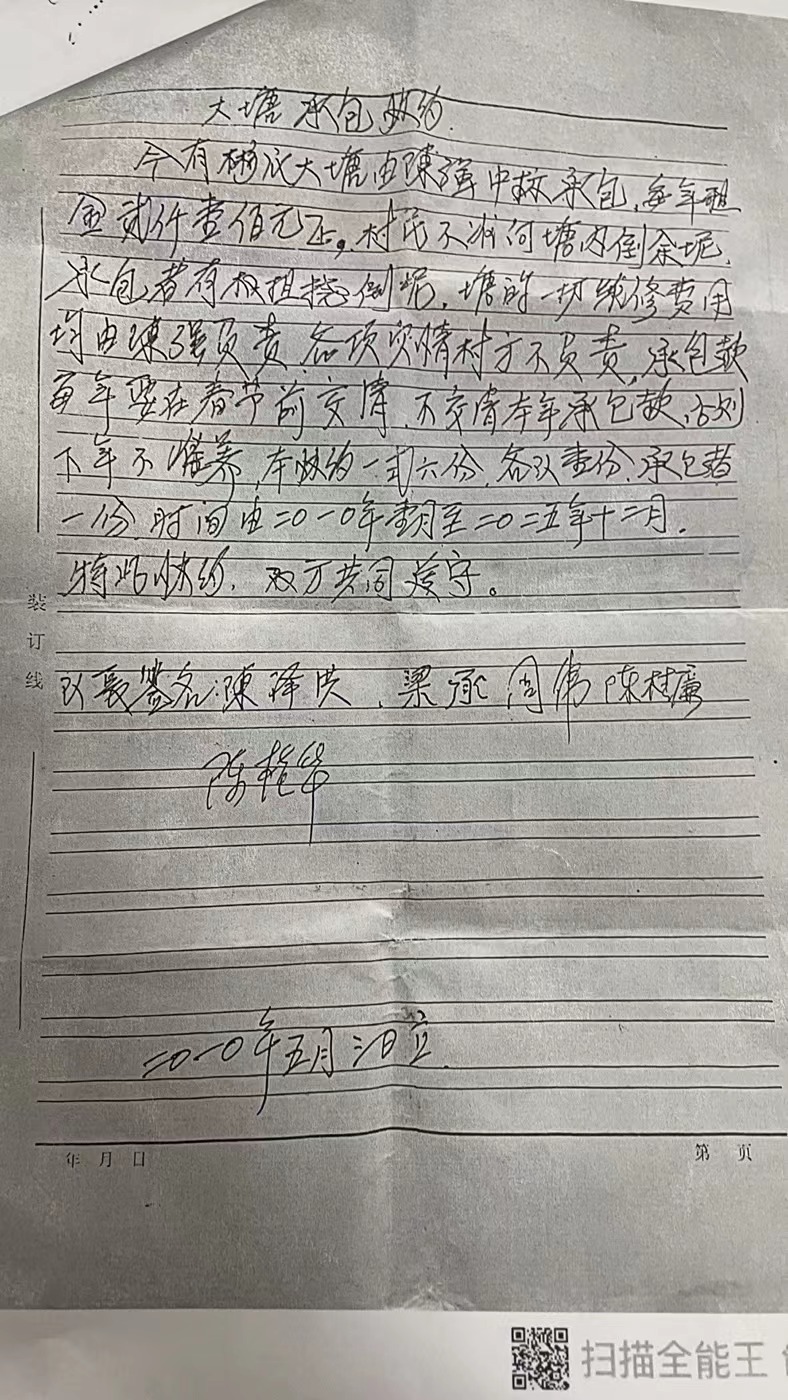 大塘承包协约.
今有彬氏大塘由陳强中标承包,每年租
金贰仟壹佰元正。村民不准向塘内倒余坭,
承包者有权担挠倒坭,塘的一切维修费用
均由陳强负责,各项灾情村方不负责,承包款
每年要在春节前交清,不交清本年承包款,否则
下年不准养,本协约一式六份,各队壹份,承包者
一份,时间由二0一0年壹月至二0二五年十二月.
特此协约,双方共同遵守。
装订线
队长签名:陳泽洪,梁承 周伟 陈树廉
陈华
二0一0年五月 日立.
年 月 日
第 页
扫描全能王